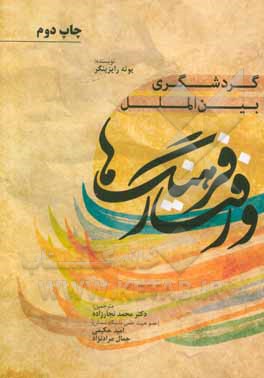 چاپ دوم
نویسنده:
یوته رایزینگر
گردشگری
بین‌الملل
و رفتار
فرهنگ‌ها
مترجمین:
دکتر محمد نجارزاده
(عضو هیئت علمی دانشگاه سمنان)
امید حکیمی
جمال مرادنژاد